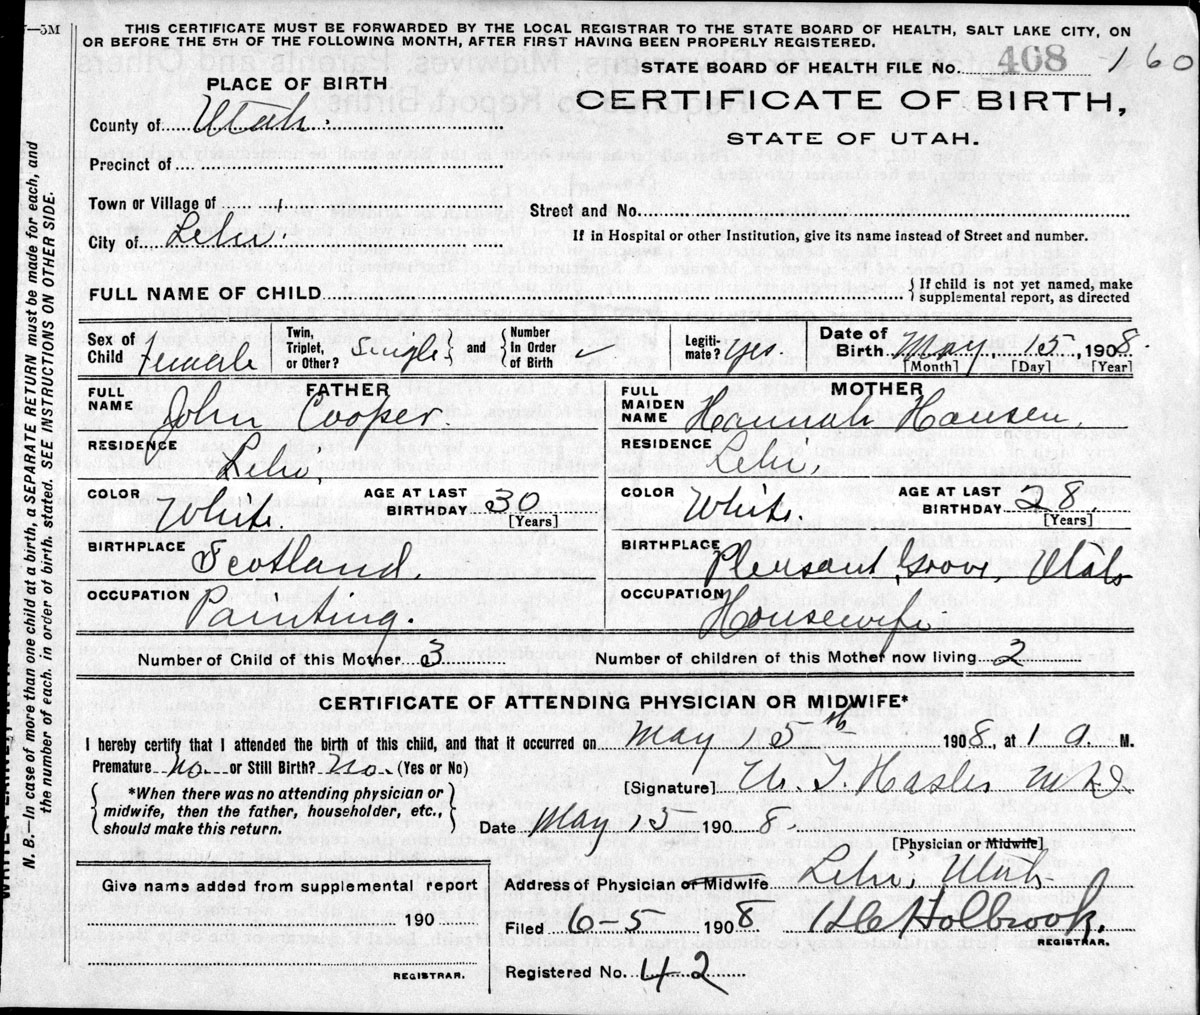 —5M THIS CERTIFICATE MUST BE FORWARDED BY THE LOCAL REGISTRAR TO THE STATE BOARD OF HEALTH, SALT LAKE CITY, ON
OR BEFORE THE 5TH OF THE FOLLOWING MONTH, AFTER FIRST HAVING BEEN PROPERLY REGISTERED.
STATE BOARD OF HEALTH FILE NO. 468 160
PLACE OF BIRTH
CERTIFICATE OF BIRTH,
STATE OF UTAH.
County of Utah.
Precinct of
Town or Village of
Street and No.
City of Lehi.
If in Hospital or other Institution, give its name instead of Street and number.
FULL NAME OF CHILD
If child is not yet named, make
supplemental report, as directed
Sex of Child Female
Twin, Triplet, or Other? Single and Number In Order of Birth ✓
Legiti-mate? Yes.
Date of Birth May, 15, 1908.
[Month] [Day] [Year]
FATHER
FULL NAME John Cooper.
RESIDENCE Lehi,
COLOR White. AGE AT LAST BIRTHDAY 30 [Years]
BIRTHPLACE Scotland,
OCCUPATION Painting.
MOTHER
FULL MAIDEN NAME Hannah Hansen,
RESIDENCE Lehi,
COLOR White. AGE AT LAST BIRTHDAY 28. [Years]
BIRTHPLACE Pleasant Grove, Utah
OCCUPATION Housewife
Number of Child of this Mother 3 Number of children of this Mother now living 2
CERTIFICATE OF ATTENDING PHYSICIAN OR MIDWIFE*
I hereby certify that I attended the birth of this child, and that it occurred on May 15th 1908, at 1 a. M.
Premature No or Still Birth? No. (Yes or No)
*When there was no attending physician or
midwife, then the father, householder, etc.,
should make this return.
[Signature] Hasler MD
Date May 15 1908.
[Physician or Midwife]
Give name added from supplemental report
190
REGISTRAR.
Address of Physician or Midwife Lehi, Utah
Filed 6-5 1908 Holbrook.
REGISTRAR.
Registered No. 42
N. B.—In case of more than one child at a birth, a SEPARATE RETURN must be made for each, and
the number of each, in order of birth, stated. SEE INSTRUCTIONS ON OTHER SIDE.